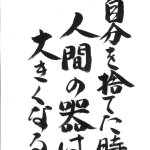 自分を捨てた時
人間の器は
大きくなる